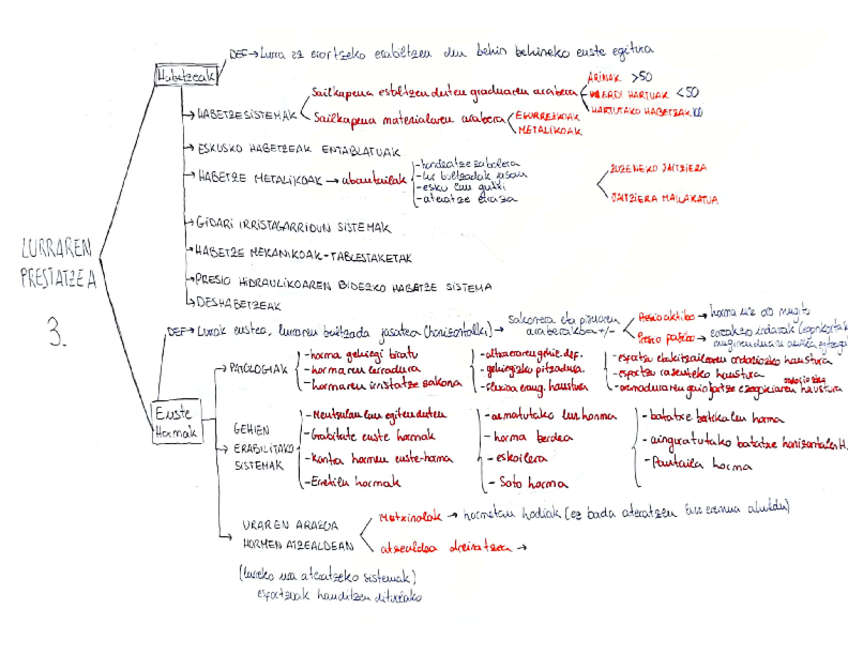 LURRAREN
PRESTATZEA
3.
Habetzeak
DEF→ Lurra ez erortzeko erabiltzea den behin behineko euste egitura
→HABETZE SISTEMAK
Sailkapena estaltzen duten graduaren arabera
ARINAK >50
ERDI HARTUAK <50
HARTUTAKO HABETZAK 100
Sailkapena materialaren arabera
EGURREZKOAK
METALIKOAK
→ESKUSKO HABETZEAK ENTABLATUAK
→HABETZE METALIKOAK → abantailak
-hondeatze zabalera
-lur bultzadak jasan
-esku lan gutxi
-ateratze erraza
ZUZENEKO JAITZIERA
JAITZIERA MAILAKATUA
→GIDARI IRRISTAGARRIDUN SISTEMAK
→HABETZE MEKANIKOAK-TABLESTAKETAK
→PRESIO HIDRAULIKOAREN BIDEZKO HABETZE SISTEMA
→DESHABETZEAK
Euste
Hormak
DEF→ Lurrak eustea, lurraren bultzada jasatea (horizontalki) → sakonera eta pisuaren
araberakoa +/-
Presio aktiboa → horma
mugitu
Presio pasiboa →
→ PATOLOGIAK
-horma gehiegi biratu
-hormaren lerradura
-hormaren irristatze sakona
-gehiegizko pitzadura.
haustura
haustura
-esfortzu rasanteko haustura
haustura
GEHIEN
ERABILITAKO
SISTEMAK
lan egiten duten
-Grabitate euste hormak
-Kontra hormen euste-horma
-Erretilu hormak
-armatutako lur horma
-horma berdea
-eskoilera
-Soto horma
-batatxe bertikalen horma
-ainguratutako batatxe horizontalen H.
-Pantaila horma
→ URAREN ARAZOA
HORMEN ATZEALDEAN
Metxinalak → hormetan hodiak (ez bada ateratzen
atzealdea dreinatzea →
(lurreko ura ateratzeko sistemak)
esfortzuak handitzen dituelako